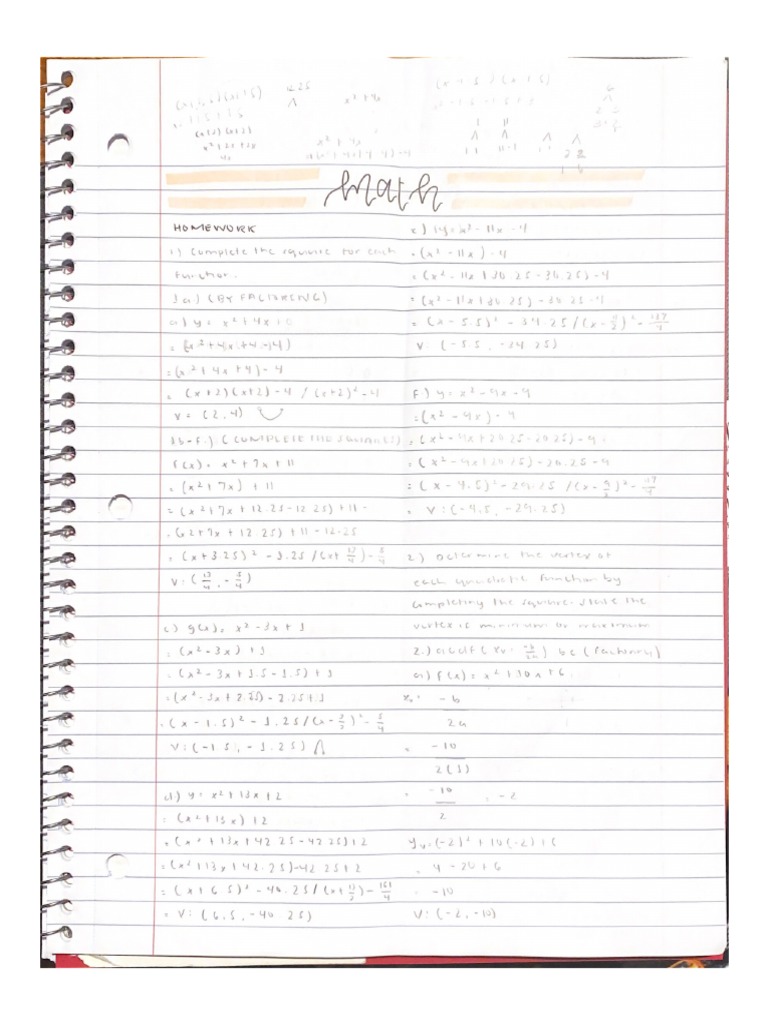 Math
HOMEWORK
1.) Complete the square for each
function.
1a.) (BY FACTORING)
a.) y = x² + 4x + 0
= (x² + 4x + 4 - 4)
= (x² + 4x + 4) - 4
= (x+2)(x+2) - 4 / (x+2)² - 4
V = (2, 4)
1b-f.) (COMPLETE THE SQUARES)
f(x) = x² + 7x + 11
= (x² + 7x) + 11
= (x² + 7x + 12.25 - 12.25) + 11 -
= (x2 + 7x + 12.25) + 11 - 12.25
= (x + 3.25)² - 1.25 / (x + 13/4) - 5/4
V: (13/4, -5/4)
c.) g(x) = x² - 3x + 1
= (x² - 3x) + 1
= (x² - 3x + 1.5 - 1.5) + 1
= (x² - 3x + 2.25) - 2.25 + 1
= (x - 1.5)² - 1.25 / (x - 3/2)² - 5/4
V: (-1.5, -1.25)
d.) y = x² + 13x + 2
= (x² + 13x) + 2
= (x² + 13x + 42.25 - 42.25) + 2
= (x² + 13x + 42.25) - 42.25 + 2
= (x + 6.5)² - 40.25 / (x + 13/2) - 161/4
= V: (6.5, -40.25)
e.) y = x² - 11x - 4
= (x² - 11x) - 4
= (x² - 11x + 30.25 - 30.25) - 4
= (x² - 11x + 30.25) - 30.25 - 4
= (x - 5.5)² - 34.25 / (x - 11/2)² - 137/4
V: (-5.5, -34.25)
f.) y = x² - 9x - 9
= (x² - 9x) - 9
= (x² - 9x + 20.25 - 20.25) - 9
= (x² - 9x + 20.25) - 20.25 - 9
= (x - 4.5)² - 29.25 / (x - 9/2)² - 117/4
= V: (-4.5, -29.25)
2.) Determine the vertex of
each quadratic function by
completing the square. State the
vertex is minimum or maximum
2.) adef (xv = -b/2a) bc (factoring)
a.) f(x) = x² + 10x + 6
xv = -b
2a
= -10
2(1)
= -10/2 = -2
yv = (-2)² + 10(-2) + 6
= 4 - 20 + 6
= -10
V: (-2, -10)